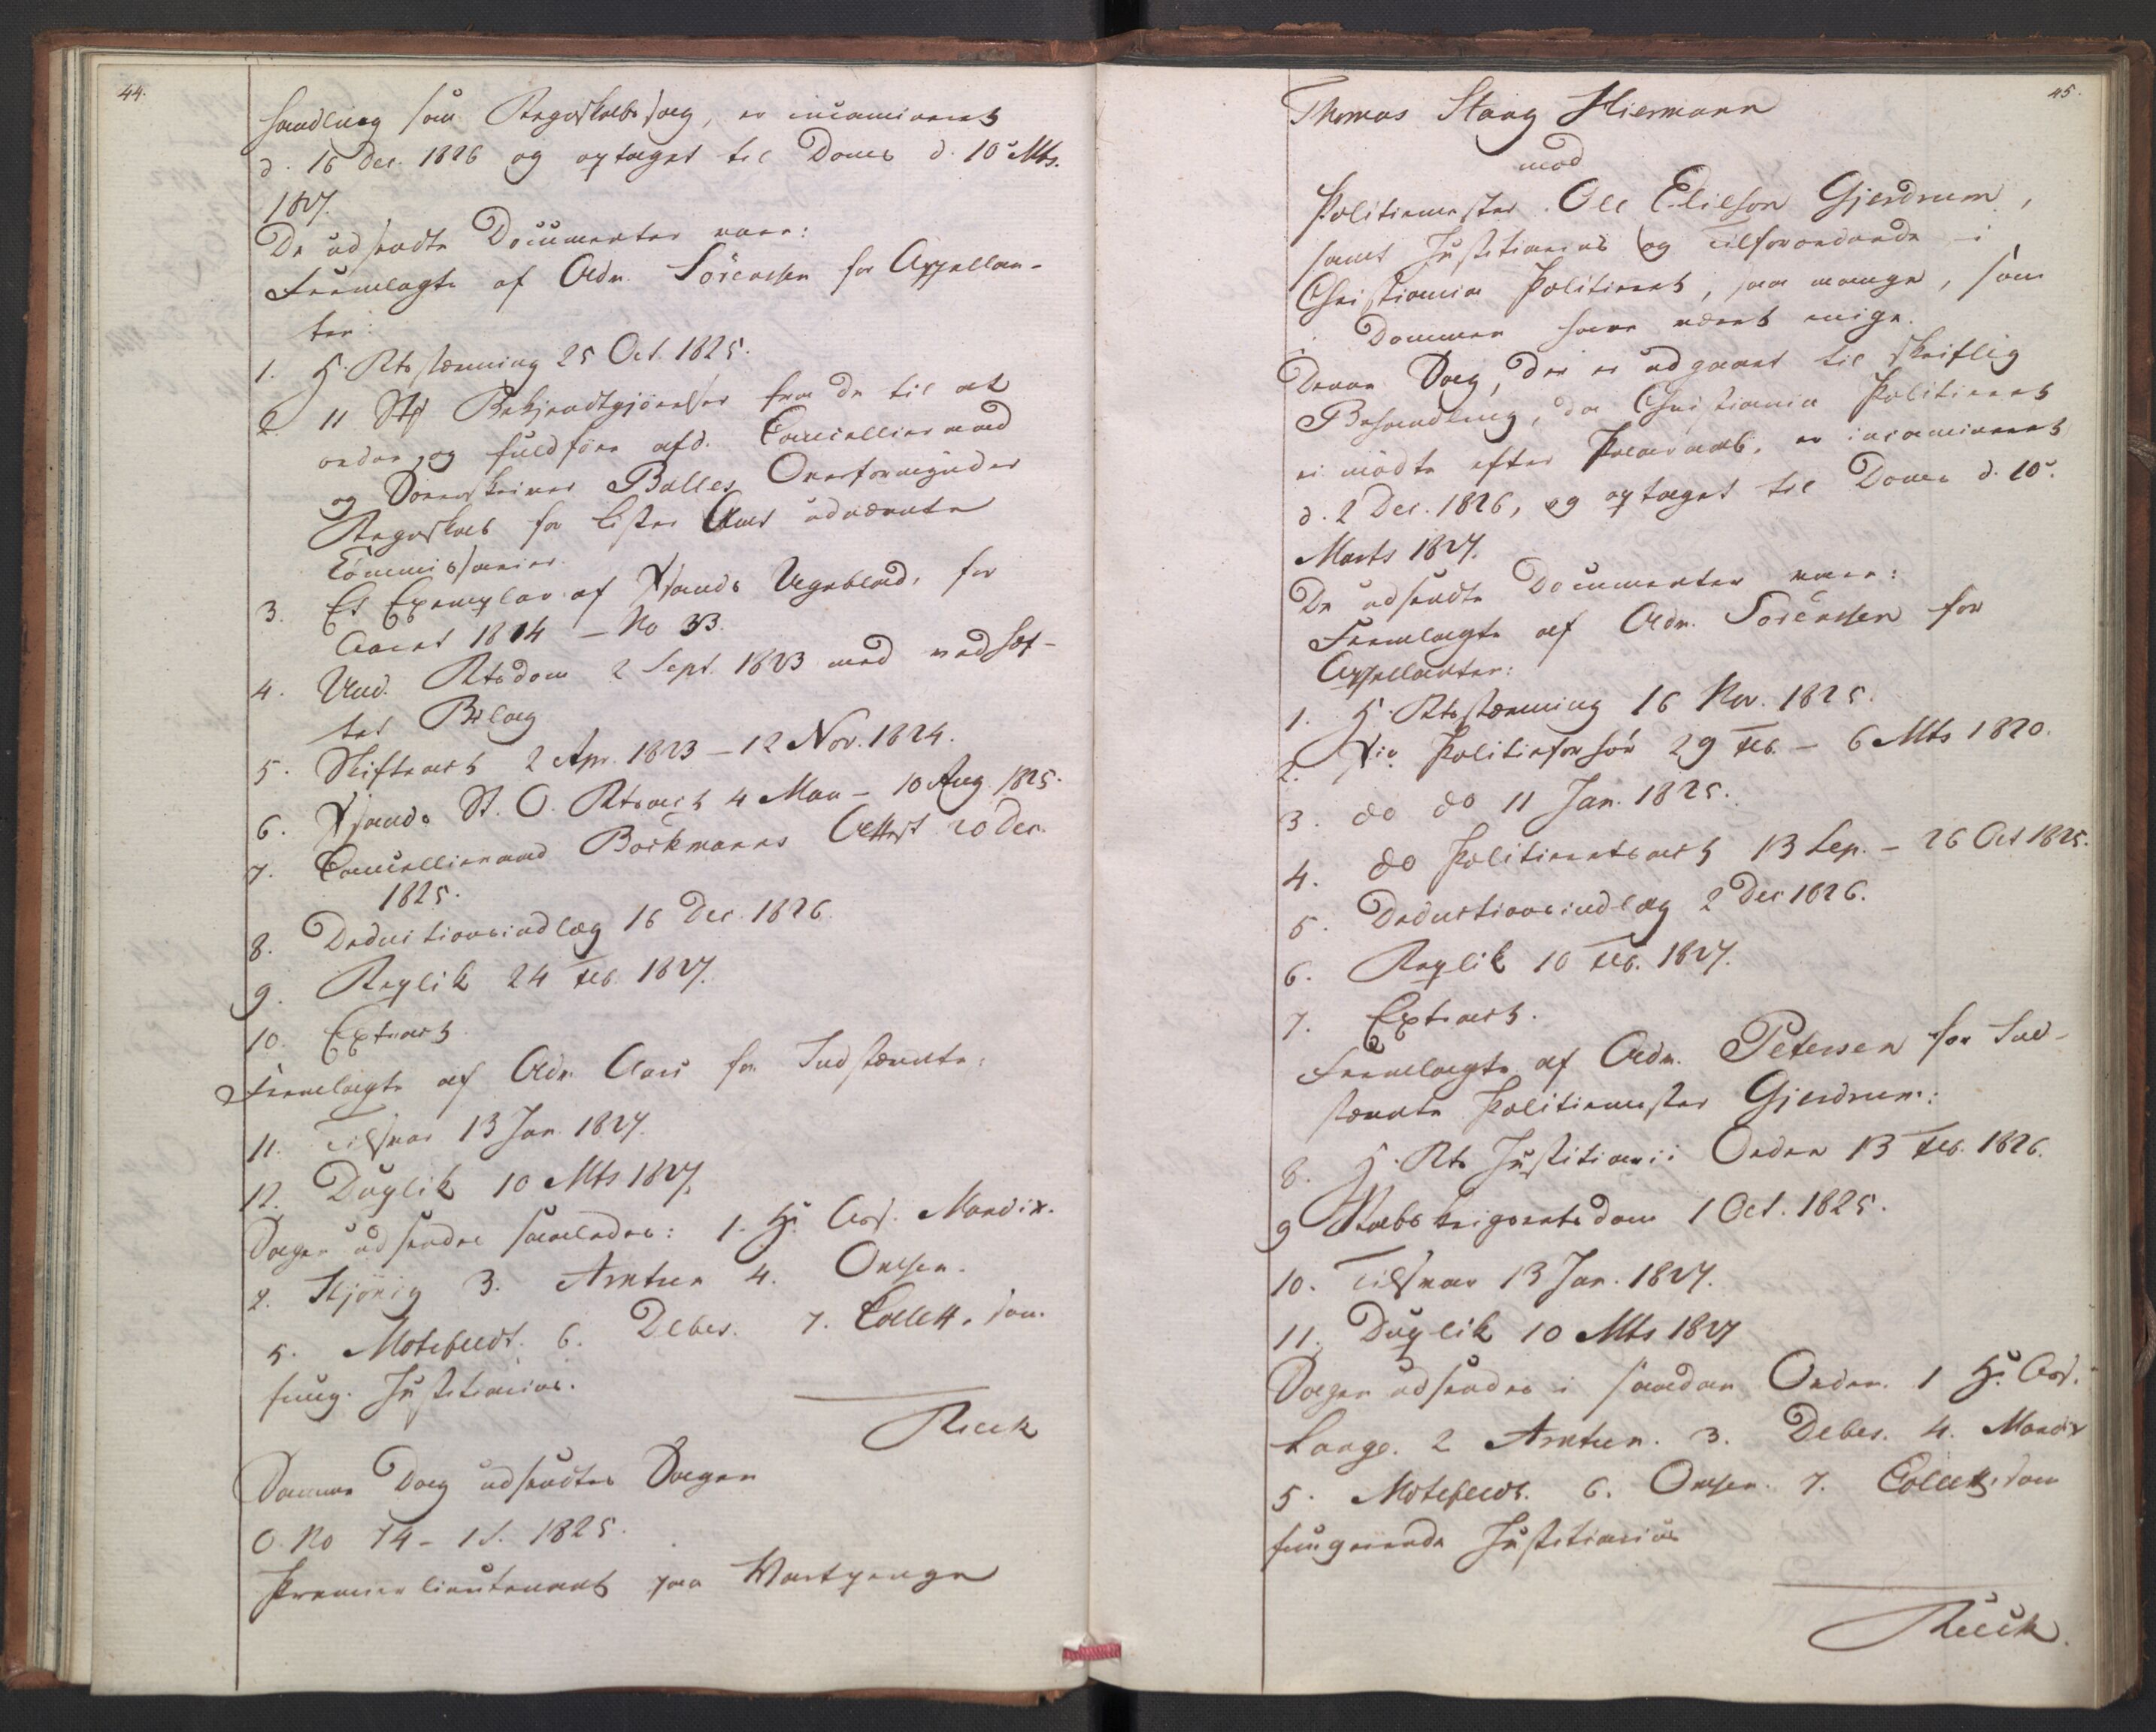 44.
handling som Regnskabssag, er incamineret
d. 16 Dec. 1826 og optaget til Doms d. 10 Mts.
1827.
De udsendte Documenter vare:
Fremlagte af Adv. Sörensen for Appellan-
ter:
1. H. Rtsstævning 25 Oct. 1825.
2. 11 St. Bekjendtgjörelser fra de til at
ordne og fuldföre afd. Cancelliraad
og Sorenskriver Balles Overformynder
Regnskab for Lister Amt udnævnte
Commissarier.
3. Et Exemplar af Xsands Ugeblad, for
Aaret 1814 – No 33.
4. Und. Rtsdom 2 Sept. 1823 med vedhef-
tet Bilag
5. Skifteact 2 Apr. 1823 – 12 Nov. 1824.
6. Xsands St. O. Rtsact 4 Mai – 10 Aug 1825.
7. Cancelliraad Böckmanns Attest 20 Dec.
1825.
8. Deductionsindlæg 16 Dec. 1826.
9. Replik 24 Feb. 1827.
10. Extract
Fremlagte af Adv. Aars for Indstævnte:
11. Tilsvar 13 Jan. 1827.
12. Duplik 10 Mts 1827.
Sagen udsendes saaledes: 1. Hr. Ass. Mandix.
2. Hjönig 3. Arntzen 4. Omsen.
5. Motzfeldt. 6. Debes. 7. Collett, som
fung. Justitiarius.
Rieck
Samme Dag udsendtes Sagen
O. No 74 – 1 S. 1825.
Premierlieutenant paa Vartpenge
45.
Thomas Staag Hiermann
mod
Politiemester Ole Elieson Gjerdrum,
samt Justitiarius og Tilforordnede i
Christiania Politieret, saa mange, som
i Dommen have været enige.
Denne Sag, der er udgaaet til skriftlig
Behandling, da Christiania Politieret
ei mödte efter Paaraab, er incamineret
d. 2 Dec. 1826, og optaget til Doms d. 10
Marts 1827.
De udsendte Documenter vare:
Fremlagte af Adv. Sörensen for
Appellanten:
1. H. Rtsstævning 16 Nov. 1825.
2. Xia Politieforhör 29 Feb. – 6 Mts 1820.
3. do do 11 Jan. 1825.
4. do Politieretsact 13 Sep. – 26 Oct 1825.
5. Deductionsindlæg 2 Dec 1826.
6. Replik 10 Feb. 1827.
7. Extract.
Fremlagte af Adv. Petersen for Ind-
stævnte Politiemester Gjerdrum:
8. H. Rts Justitiarii Orden 13 Feb. 1826.
9 Stabskrigsretsdom 1 Oct. 1825.
10. Tilsvar 13 Jan. 1827.
11. Duplik 10 Mts 1827
Sagen udsendes i saadan Orden. 1 Hr. Ass.
Lange. 2 Arntzen. 3. Debes. 4. Mandix
5. Motzfeldt. 6. Omsen. 7. Collett, som
fungerende Justitiarius
Rieck.